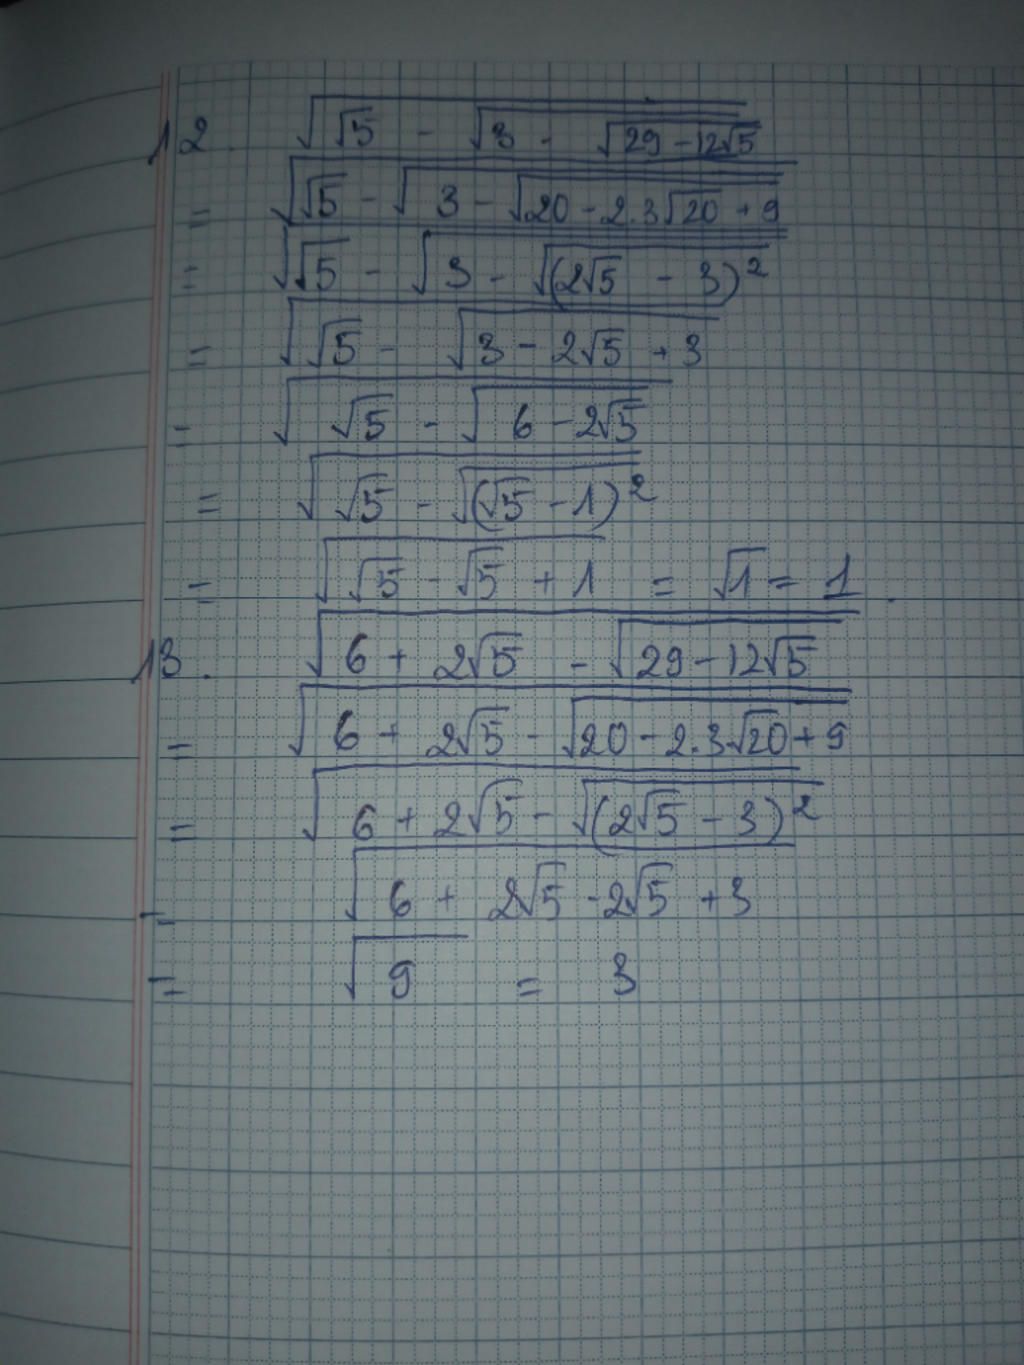 12. √(√5 - √(3 - √(29 - 12√5)))
= √(√5 - √(3 - √(20 - 2.3√20 + 9)))
= √(√5 - √(3 - √((2√5 - 3)²)))
= √(√5 - √(3 - 2√5 + 3))
= √(√5 - √(6 - 2√5))
= √(√5 - √((√5 - 1)²))
= √(√5 - √5 + 1) = √1 = 1.
13. √(6 + 2√5 - √(29 - 12√5))
= √(6 + 2√5 - √(20 - 2.3√20 + 9))
= √(6 + 2√5 - √((2√5 - 3)²))
= √(6 + 2√5 - 2√5 + 3)
= √9 = 3